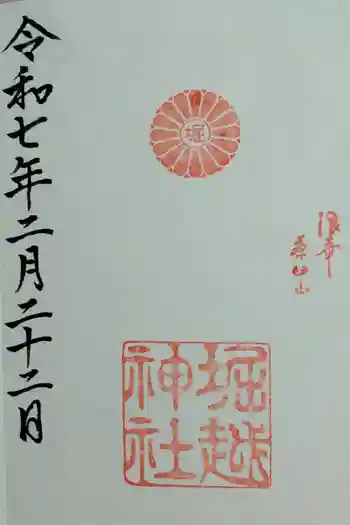 堀
堀越
神社
令和七年二月二十二日